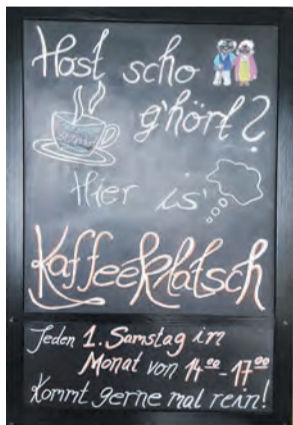 Host scho
g'hört?
Hier is'
Kaffeeklatsch
Jeden 1. Samstag im
Monat von 14⁰⁰-17⁰⁰
Kommt gerne mal rein!